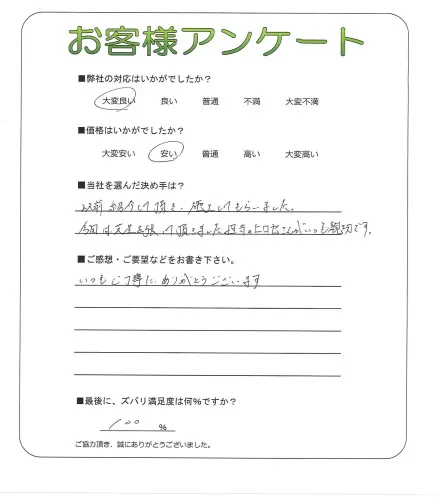 お客様アンケート
■弊社の対応はいかがでしたか?
大変良い 良い 普通 不満 大変不満
■価格はいかがでしたか?
大変安い 安い 普通 高い 大変高い
■当社を選んだ決め手は?
以前紹介して頂き、施工してもらいました。
今回は天井を張って頂きました担当のヒロセさんがいつも親切です。
■ご感想・ご要望などをお書き下さい。
いつもご丁寧にありがとうございます
■最後に、ズバリ満足度は何%ですか?
100 %
ご協力頂き、誠にありがとうございました。